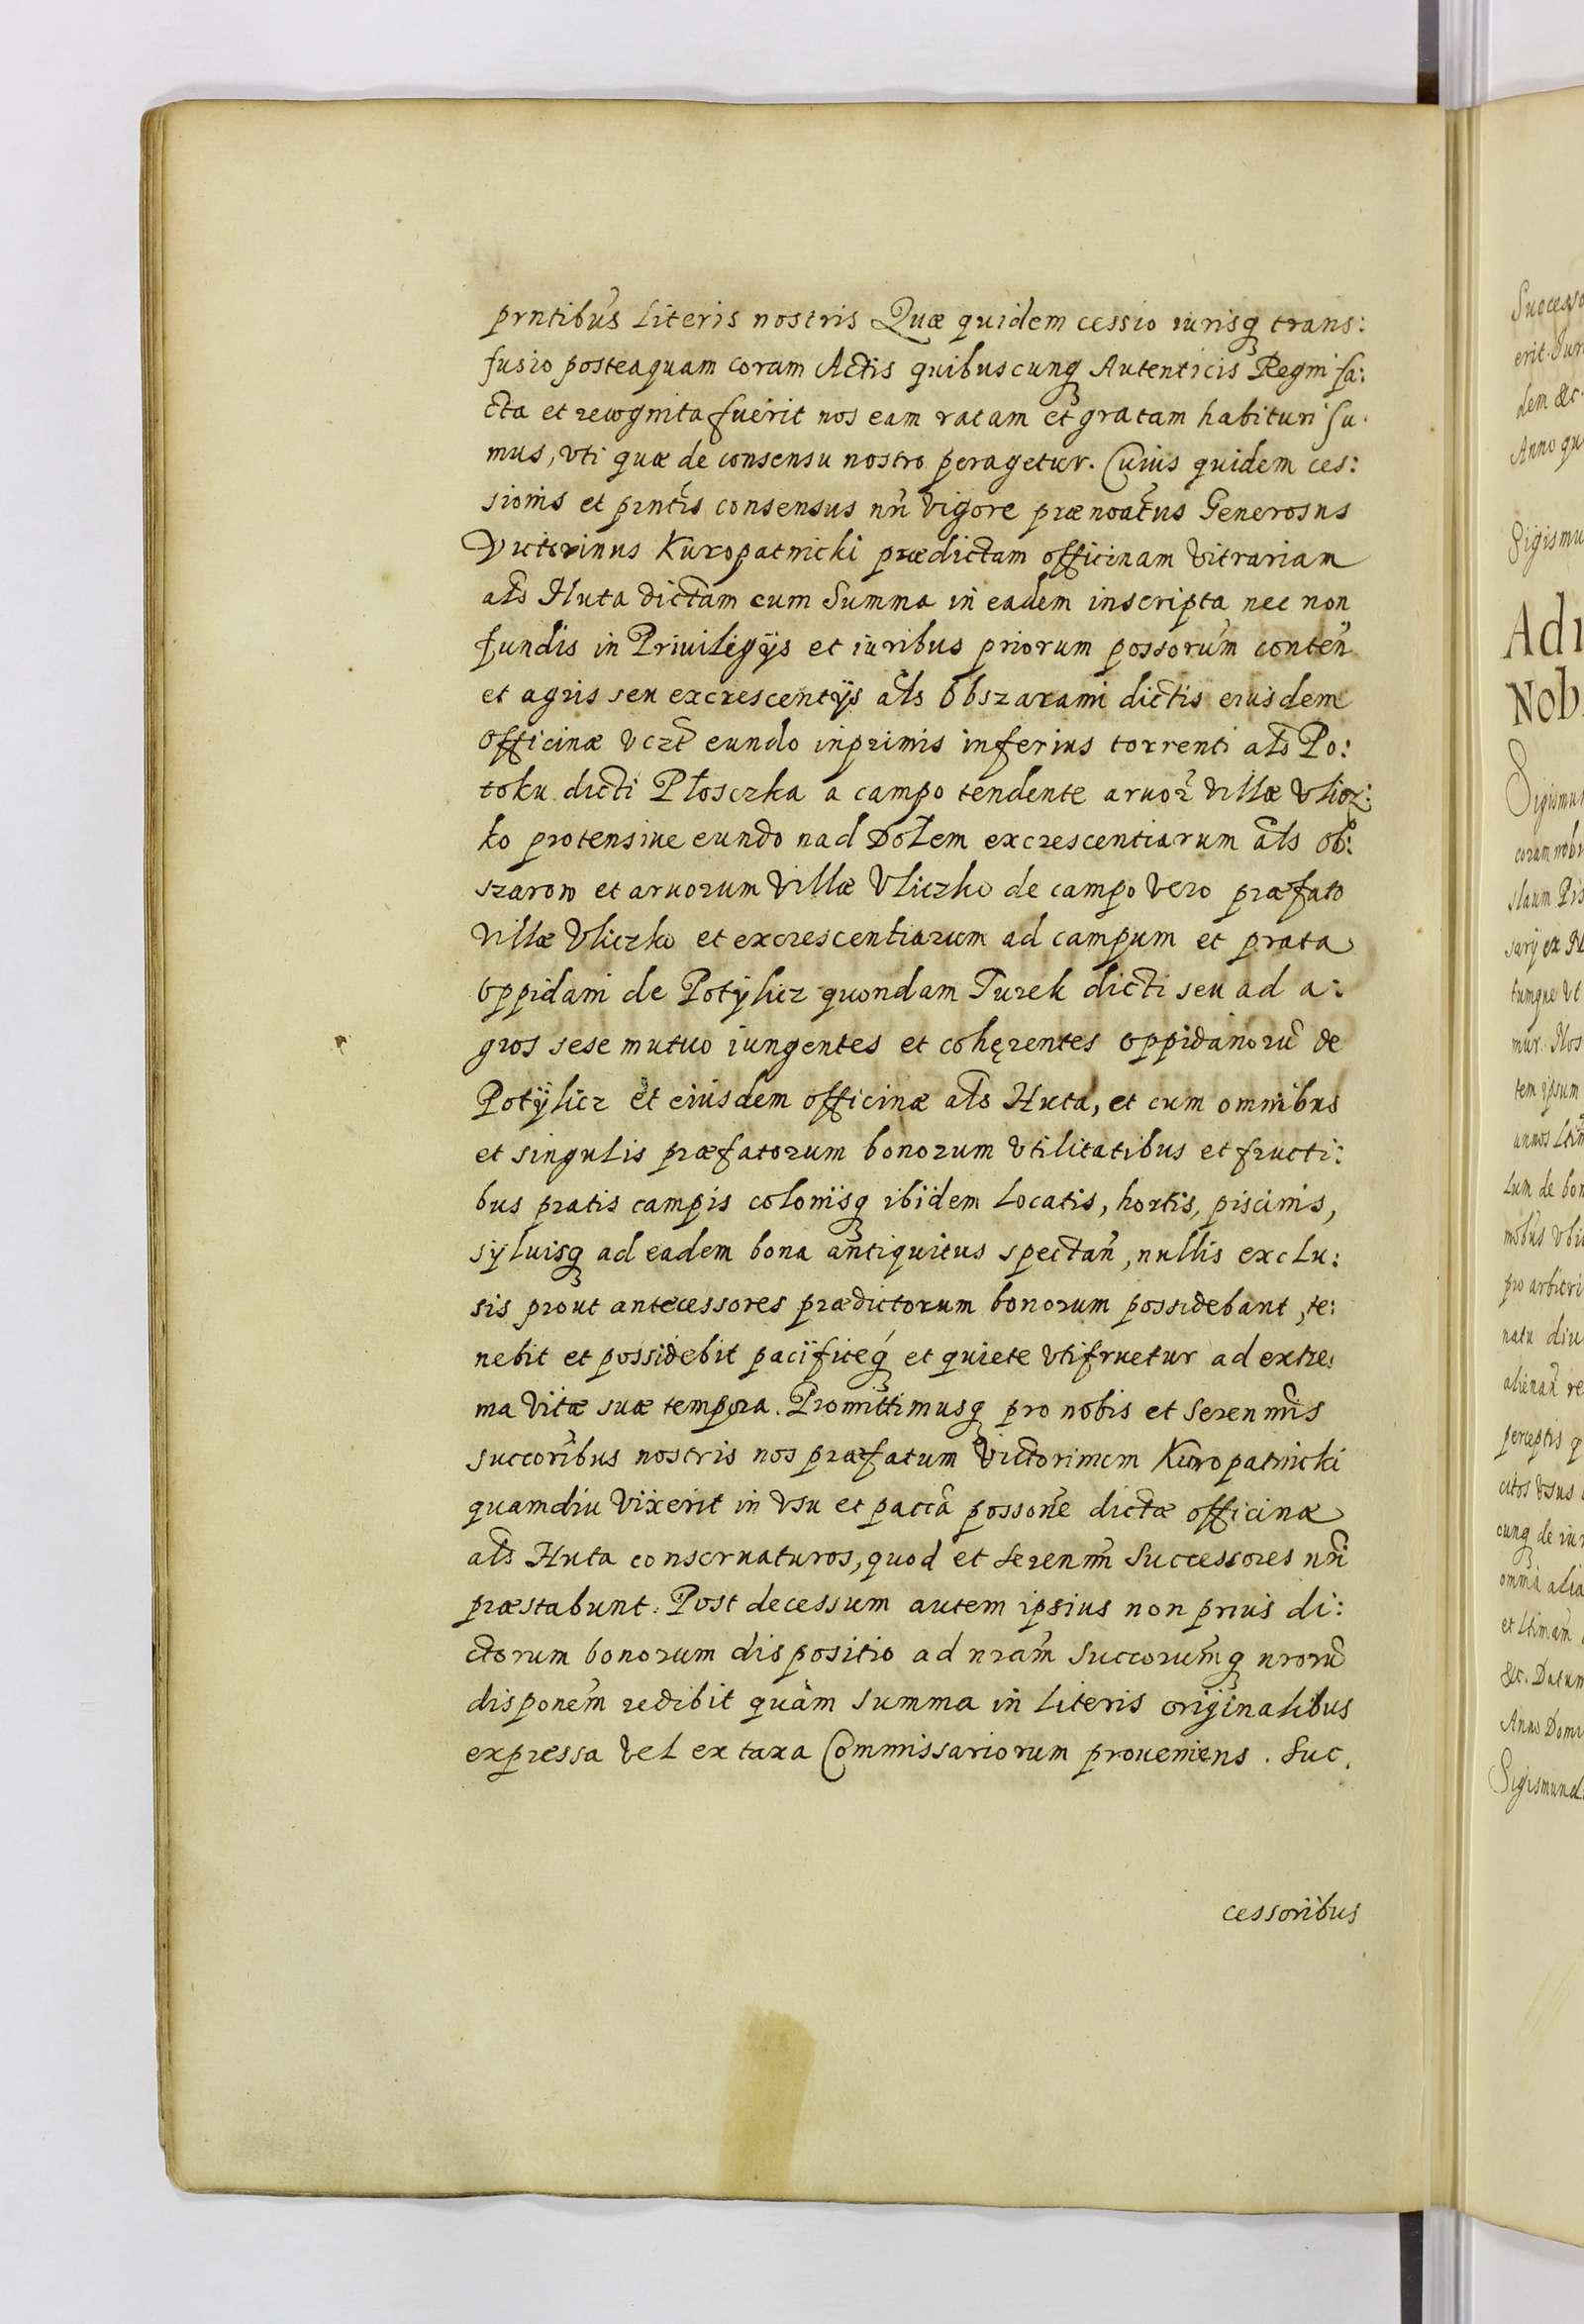 prntibus literis nostris Quæ quidem cessio iurisq trans:
fusio posteaquam coram Actis quibuscunq Autenticis Regni fa:
cta et recognita fuerit nos eam ratam et gratam habituri su:
mus, vti quæ de consensu nostro peragetur. Cuius quidem ces:
sionis et prntis consensus nri vigore prænoatus Generosus
Victorinus Kuropatnicki prædictam officinam vitrariam
als Huta dictam cum Summa in eadem inscripta nec non
fundis in Priuilegÿs et iuribus priorum possorum conten
et agris seu excrescentÿs als Obszarami dictis eiusdem
officinæ vczt eundo inprimis inferius torrenti als Po:
toku dicti Płosczka a campo tendente aruor villæ Vlicz:
ko protensiue eundo nad Dołem excrescentiarum als ob:
szarow et aruorum villæ Vliczko de campo vero præfato
villæ Vliczko et excrescentiarum ad campum et prata
oppidani de Potÿlicz quondam Turek dicti seu ad a:
gros sese mutuo iungentes et cohęrentes oppidanorũ de
Potÿlicz et eiusdem officinæ als Huta, et cum omnibus
et singulis præfatorum bonorum vtilitatibus et fructi:
bus pratis campis colonisq ibidem locatis, hortis, piscinis,
syluisq ad eadem bona antiquitus spectan, nullis exclu:
sis prout antecessores prædictorum bonorum possidebant, te:
nebit et possidebit pacificeq et quiete vtifruetur ad extre:
ma vitæ suæ tempora. Promittimusq pro nobis et Serenmis
succoribus nostris nos præfatum Victorinum Kuropatnicki
quamdiu vixerit in vsu et pacca possone dictæ officinæ
als Huta conseruaturos, quod et Serenmi Successores nri
præstabunt. Post decessum autem ipsius non prius di:
ctorum bonorum dispositio ad nram Succorumq nrorũ
disponem redibit quàm summa in literis originalibus
expressa vel ex taxa Commissariorum proueniens. Suc.
cessoribus
Successo
erit. Jur
dem &c.
Anno qu
Sigismu
Adi
Nob
Sigismu
coram nobi
slaum Pis
sarÿ ex
tumque vt
mur. Nos
tem ipsum
annos
lum de bon
mobus vbi
pro arbitri
natu diu
alienan re
perceptis q
citos vsus
cunq de iur
omnia alia
et ltimam
&c. Datum
Anno Domi
Sigismund